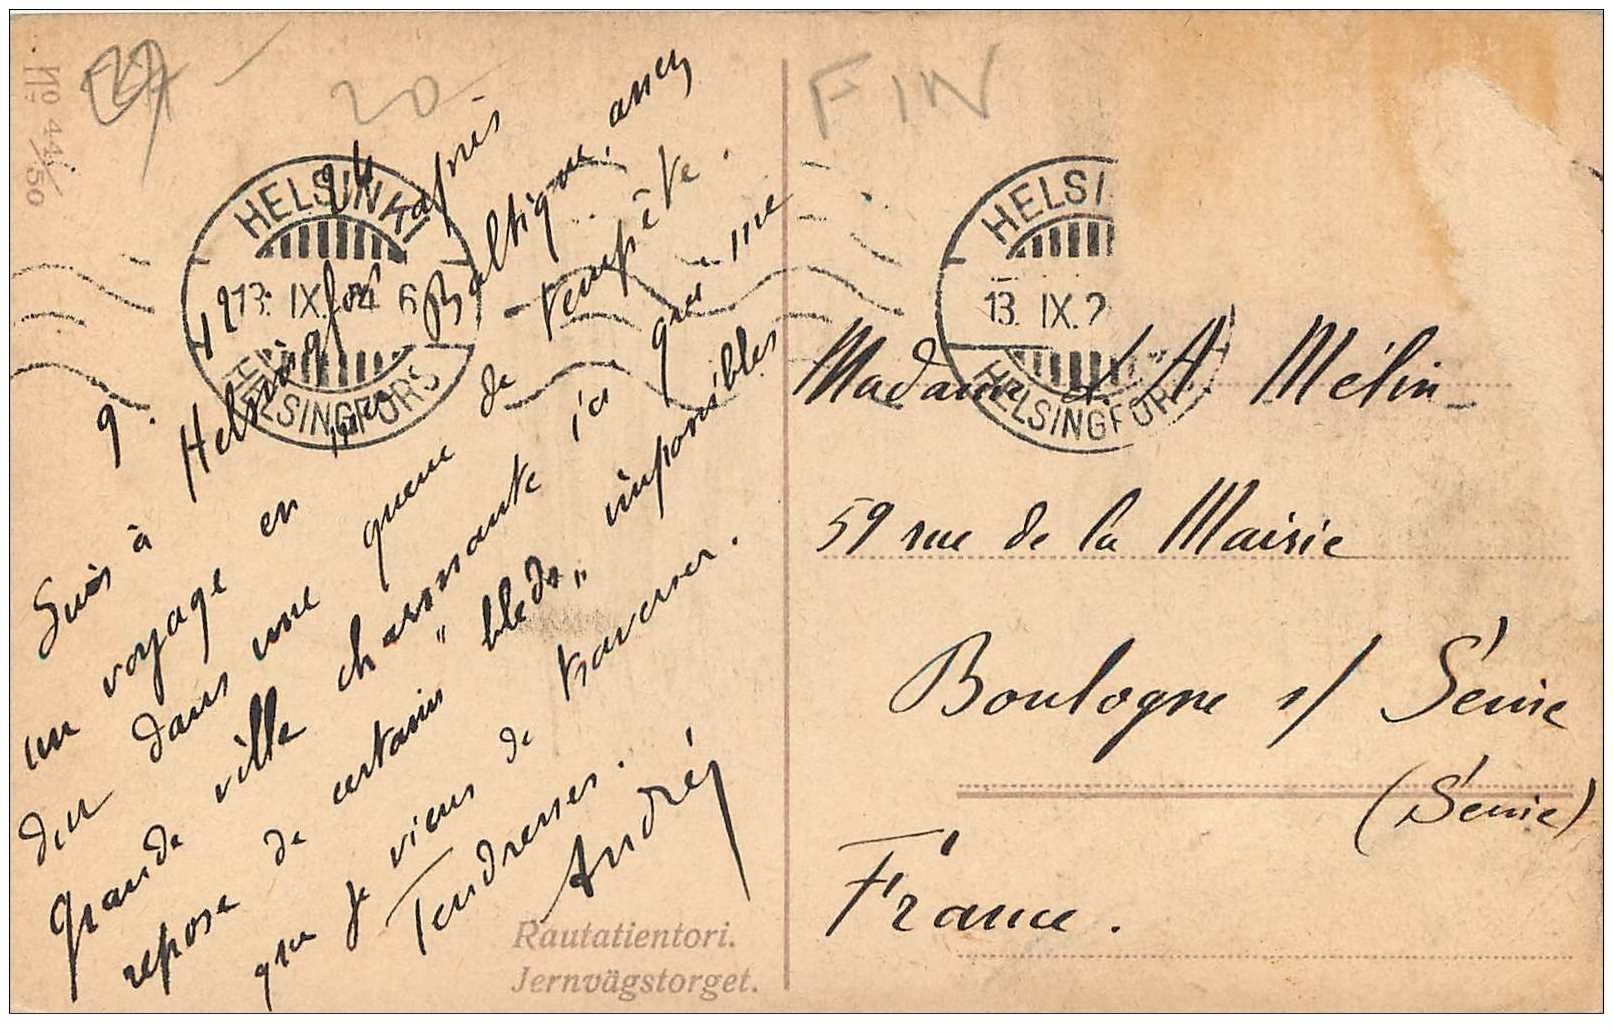 No 44/50
20
FIN
HELSINKI
13. IX. 24. 6
HELSINGFORS
HELSI
13. IX. 2
HELSINGFOR
12 9. 24
Suis à Helsingfors après
un voyage en mer Baltique, assez
dur dans une queue de tempête.
Grande ville charmante ici qui me
repose de certains "bleds" impossibles
que je viens de traverser.
Tendresses.
André
Rautatientori.
Jernvägstorget.
Madame A. Mélin
59 rue de la Mairie
Boulogne s/ Seine
(Seine)
France.